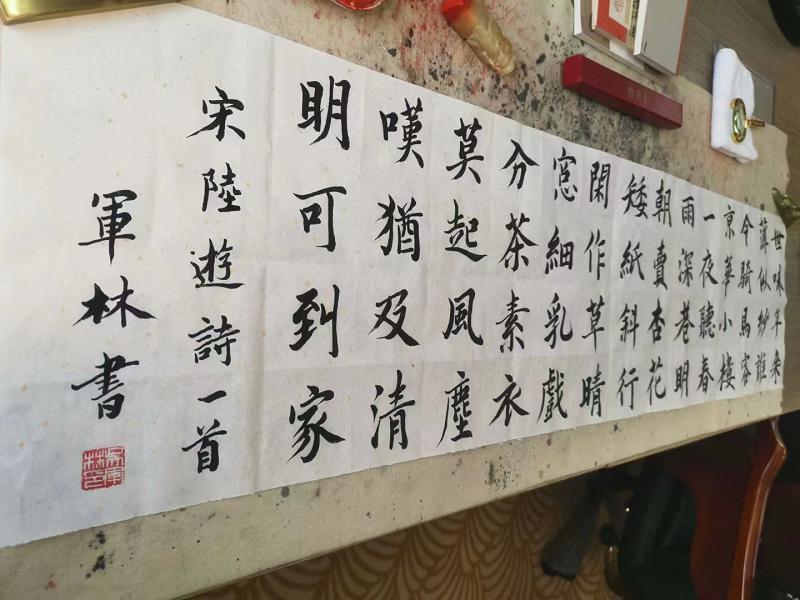 世味年来
薄似紗誰
令騎馬客
京華小樓
一夜聽春
雨深巷明
朝賣杏花
矮紙斜行
閑作草晴
窓細乳戲
分茶素衣
莫起風塵
嘆猶及清
明可到家
宋陸遊詩一首
軍林書